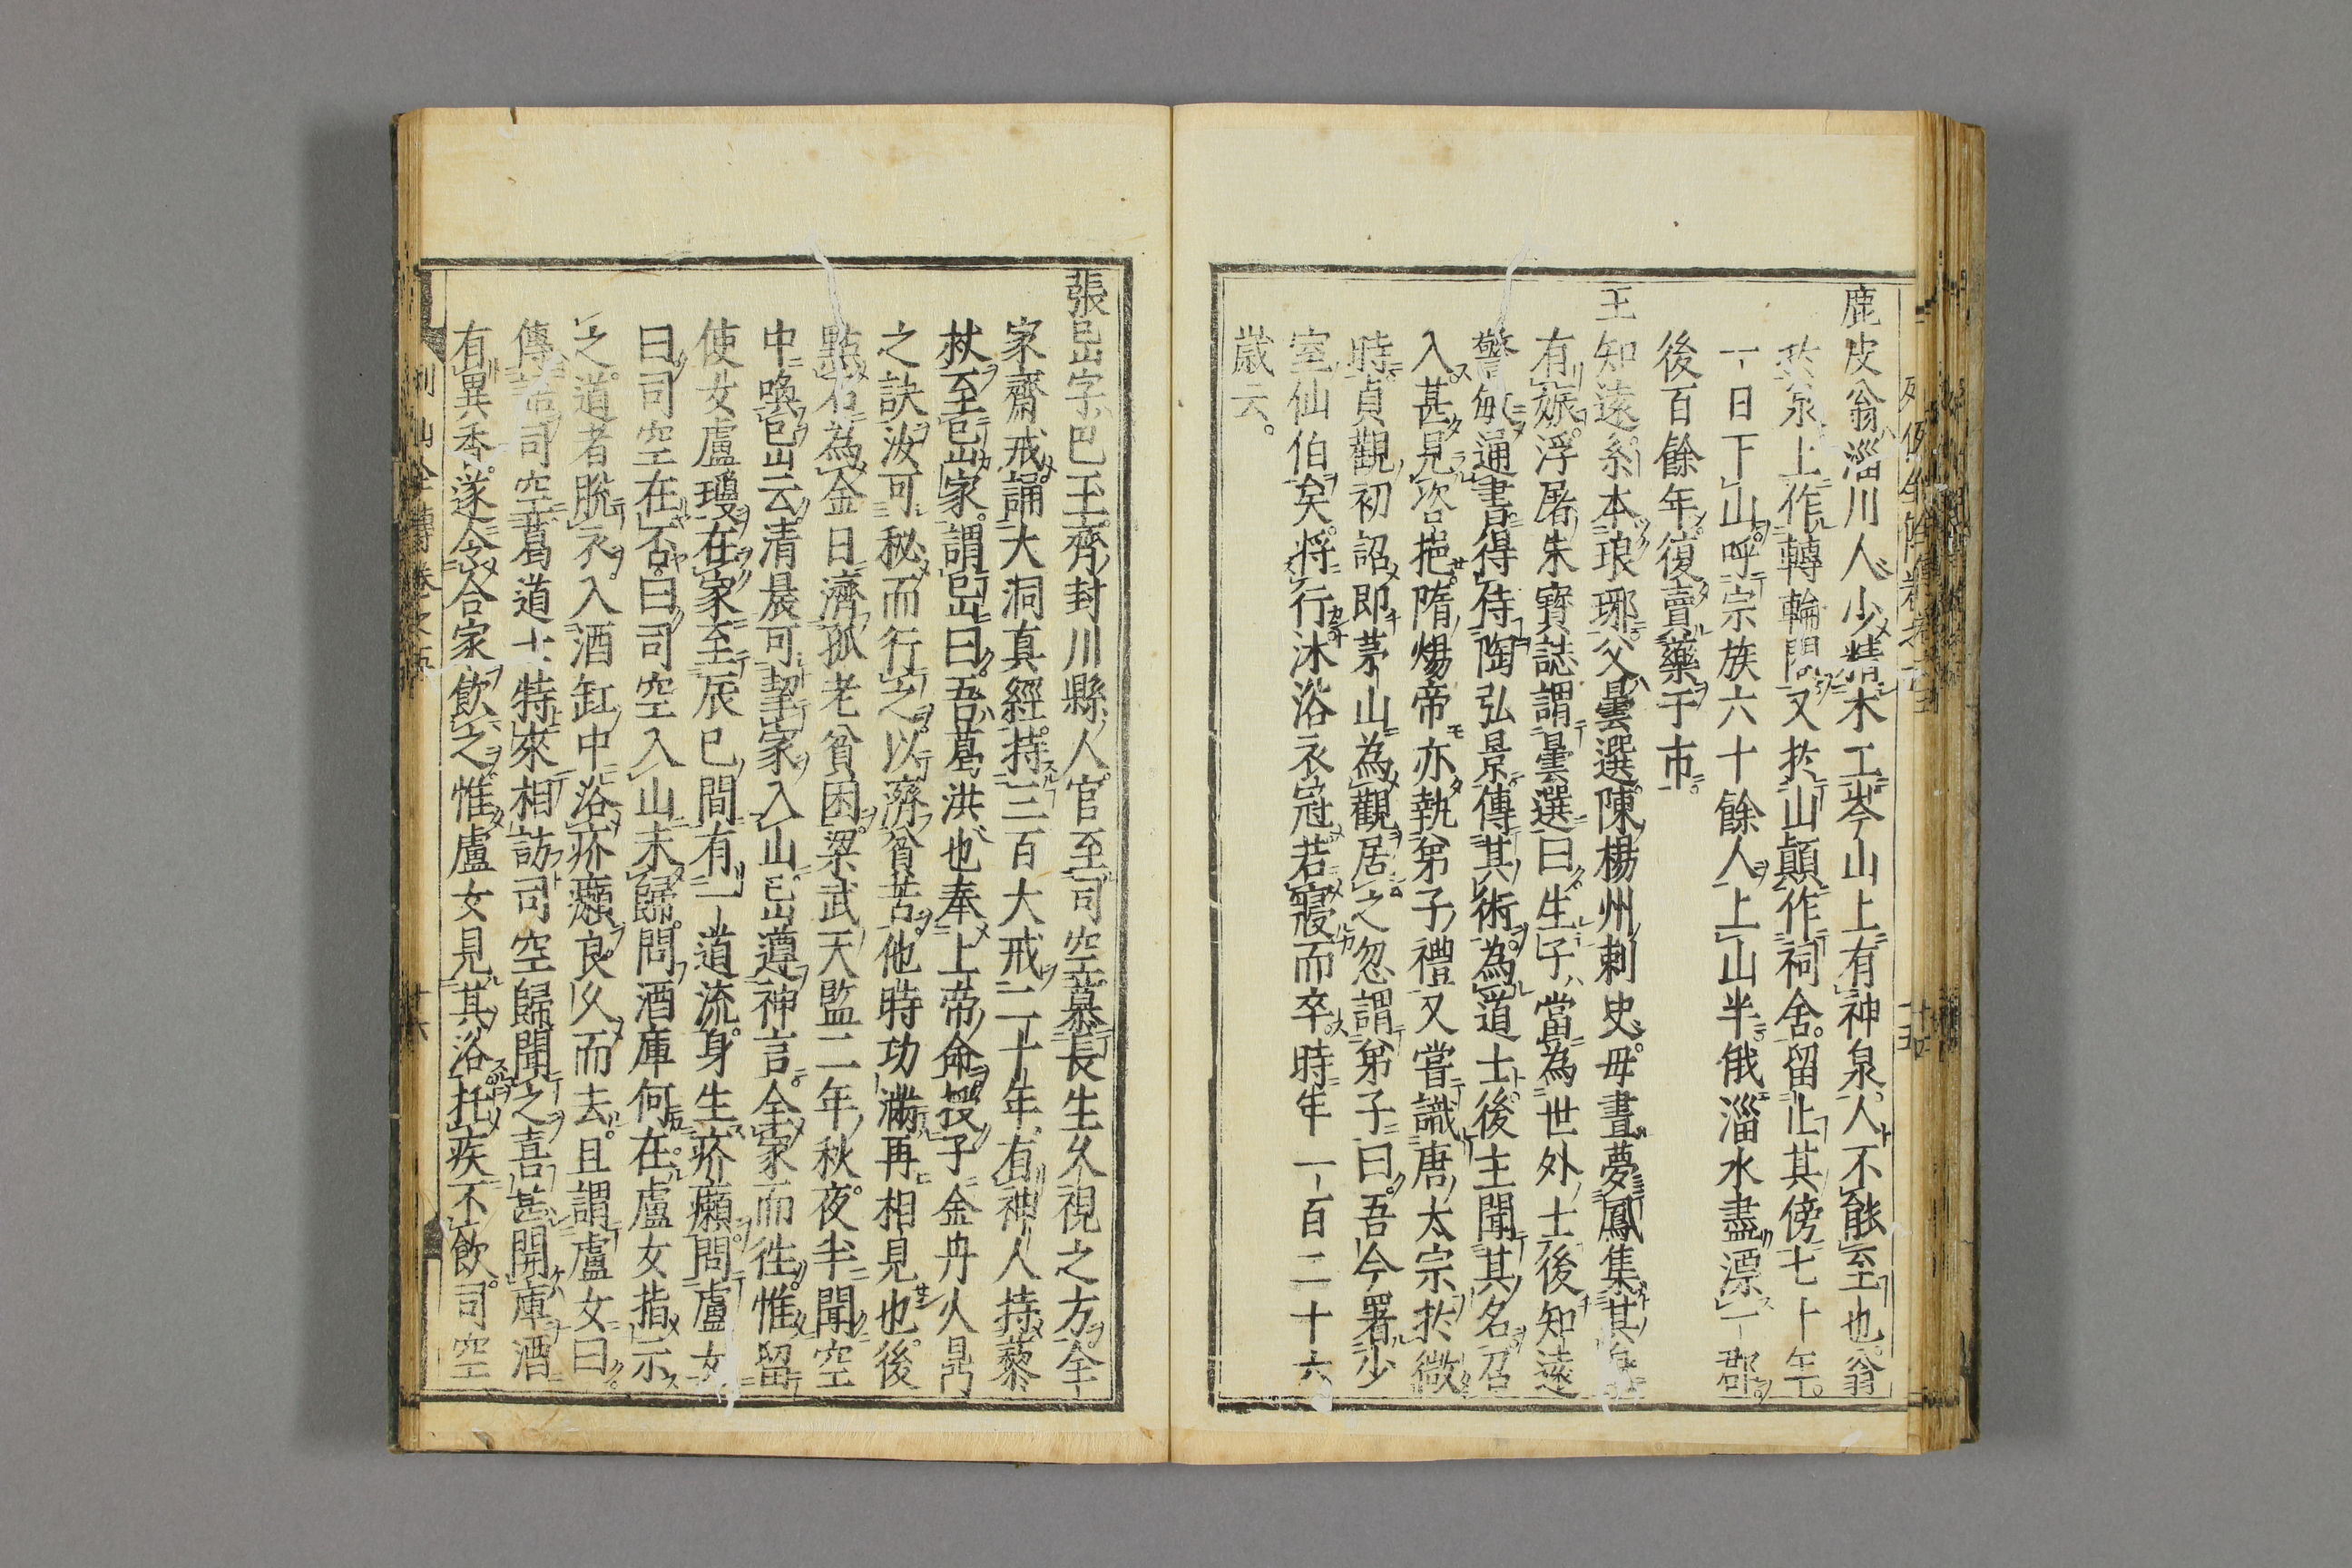 鹿皮翁淄川人少精木工岑山上有神泉人不能至也翁
於泉上作轉輪閣又於山顛作祠舍留止其傍七十年
一日下山呼宗族六十餘人上山半俄淄水盡漂一郡
後百餘年復賣藥于市
王知遠系本琅琊父曇選陳楊州刺史母晝夢鳳集其身
有娠浮屠朱寶誌謂曇選曰生子當為世外士後知遠
警敏通書得侍陶弘景傳其術為道士後主聞其名召
入甚見咨挹隋煬帝亦執弟子禮又嘗識唐太宗於微
時貞觀初詔即茅山為觀居之忽謂弟子曰吾今署少
室仙伯矣將行沐浴衣冠若寢而卒時年一百二十六
歲云
張㠯字巴王齊封川縣人官至司空慕長生久視之方全
家齋戒誦大洞真經持三百大戒二十年有神人持藜
杖至家謂曰吾葛洪也奉上帝命授子金丹火鼎
之訣汝可秘而行之以濟貧苦他時功滿再相見也後
點石為金日濟孤老貧困梁武天監二年秋夜半聞空
中喚云清晨可挈家入山遵神言全家而往惟留
使女盧瓊在家至辰巳間有一道流身生疥癩問盧女
曰司空在否曰司空入山未歸問酒庫何在盧女指示
之道者脫衣入酒缸中浴疥癩良久而去且謂盧女曰
傳語司空葛道士特來相訪司空歸聞之喜甚開庫酒
有異香遂令合家飲之惟盧女見其浴托疾不飲司空
列仙全傳卷之五
十六